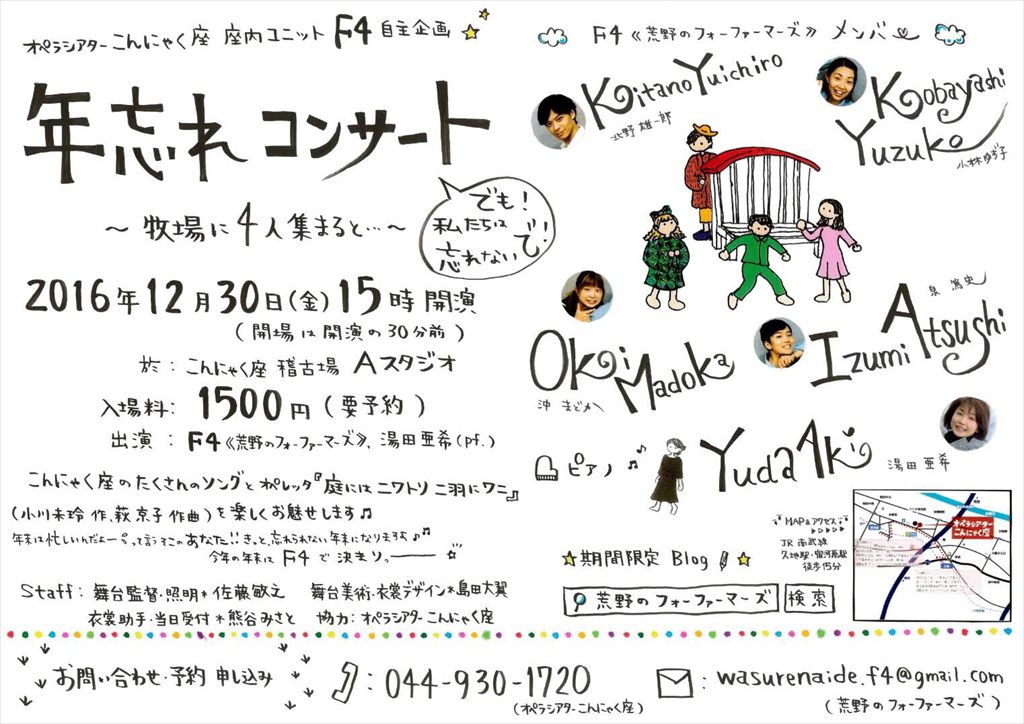 オペラシアターこんにゃく座 座内ユニット F4 自主企画
年忘れコンサート
～ 牧場に4人集まると… ～
でも！
私たちは
忘れないで！
2016年12月30日(金)15時開演
(開場は開演の30分前)
於：こんにゃく座 稽古場 Aスタジオ
入場料：1500円(要予約)
出演：F4《荒野のフォーファーマーズ》、湯田亜希(pf.)
こんにゃく座のたくさんのソングとオペレッタ『庭にはニワトリ二羽にワニ』
(小川未玲 作、萩京子 作曲)を楽しくお魅せします♫
年末は忙しいんだよーって言うそこのあなた!!きっと、忘れられない年末になります♪♫
今年の年末はF4で決まりっ――☆
Staff：舞台監督・照明＊佐藤敏之 舞台美術・衣裳デザイン＊島田大翼
衣裳助手・当日受付＊熊谷みさと 協力：オペラシアターこんにゃく座
F4《荒野のフォーファーマーズ》メンバー
Kitano Yuichiro
北野雄一郎
Kobayashi
Yuzuko
小林ゆず子
Oki Madoka
沖 まどか
Izumi Atsushi
泉 篤史
ピアノ
Yuda Aki
湯田亜希
MAP&アクセス
JR南武線
久地駅・宿河原駅
徒歩15分
オペラシアター
こんにゃく座
☆期間限定 Blog☆
荒野のフォーファーマーズ 検索
お問い合わせ・予約申し込み
：044-930-1720
(オペラシアターこんにゃく座)
：wasurenaide.f4@gmail.com
(荒野のフォーファーマーズ)